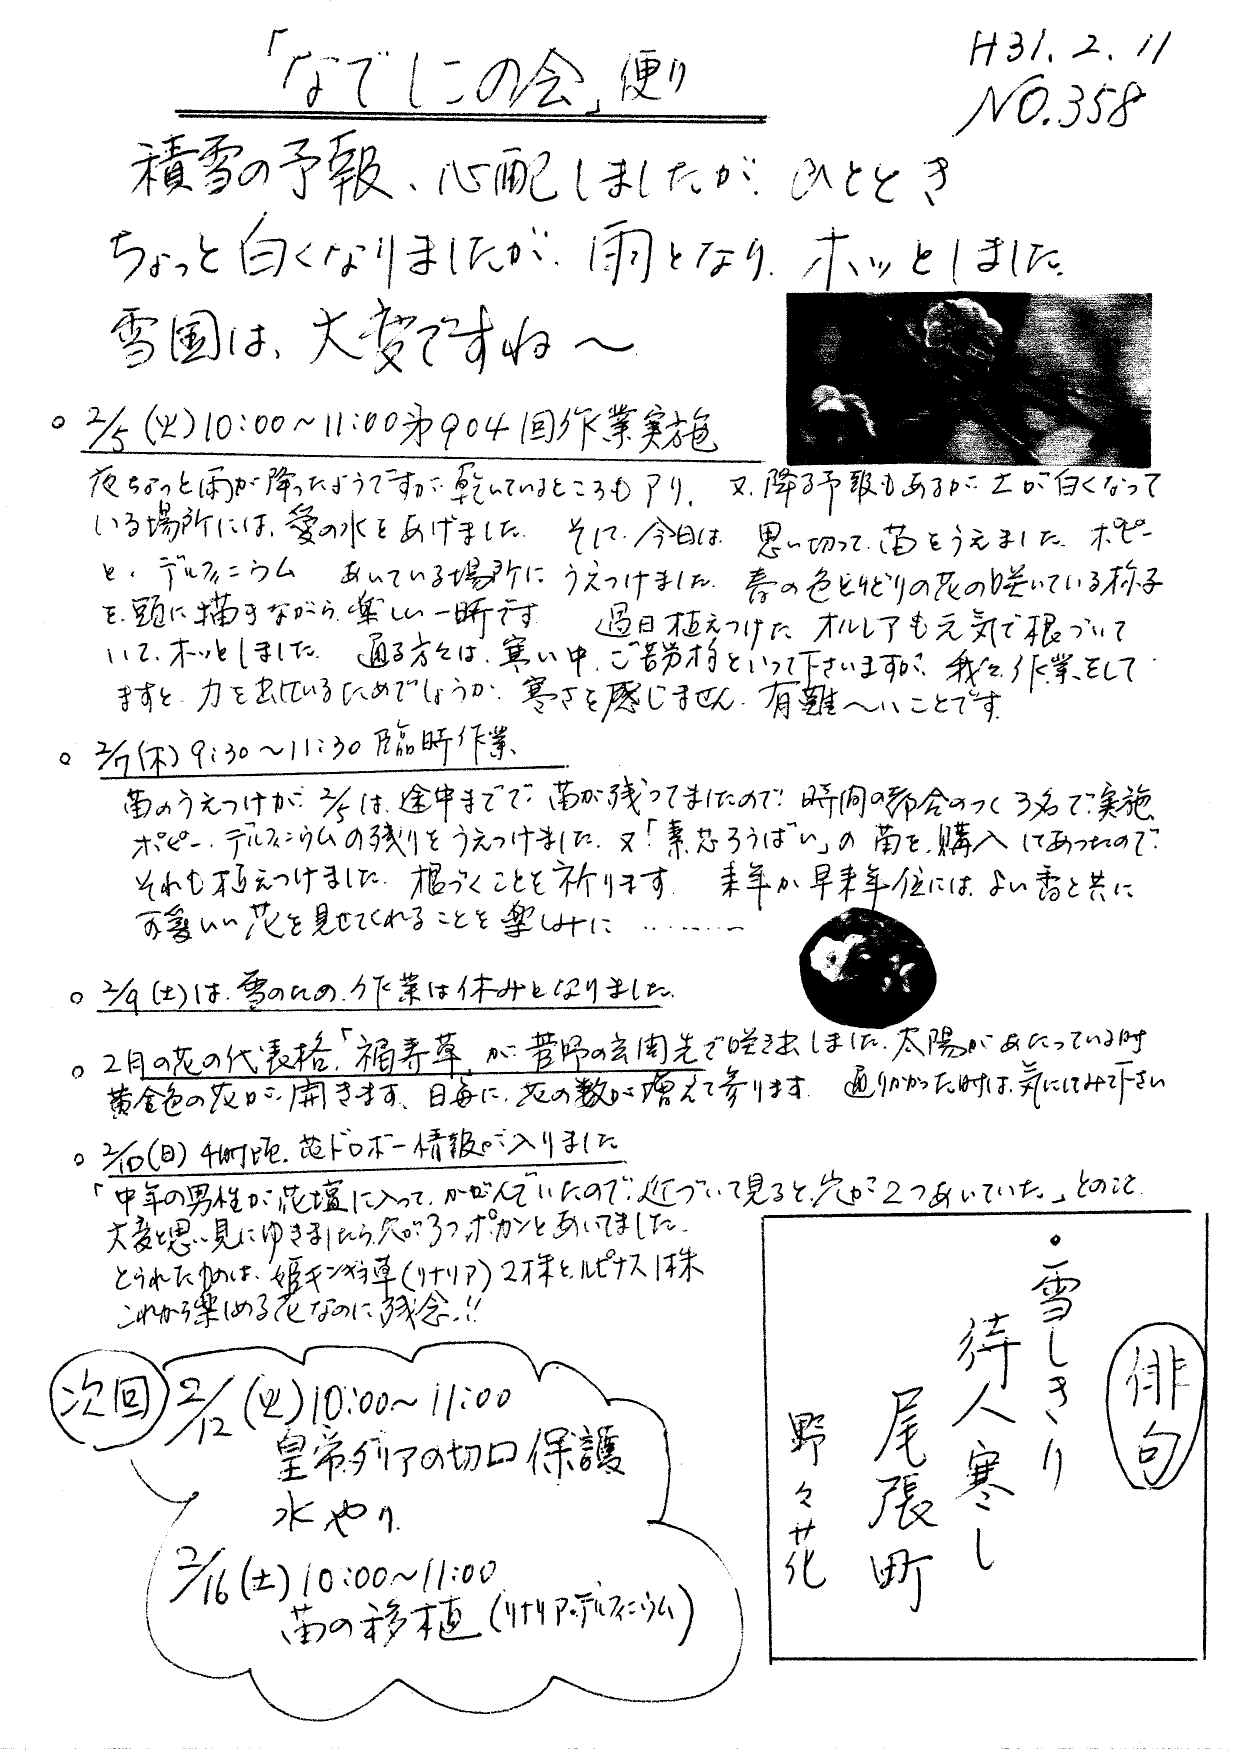 「なでしこの会」便り
H31.2.11
NO.358
積雪の予報、心配しましたが、ひととき
ちょっと白くなりましたが、雨となり、ホッとしました。
雪国は、大変ですね〜
○ 2/5(火)10:00〜11:00 第904回作業実施
夜ちょっと雨が降ったようですが、乾いているところもアリ、又、降る予報もあるが、土が白くなって
いる場所には、愛の水をあげました。そして、今日は、思い切って、苗をうえました。ポピー
と、デルフィニウム あいている場所に うえつけました。春の色とりどりの花の咲いている様子
を、頭に描きながら、楽しい一時です 過日植えつけた オルレアも元気で根づいて
いて、ホッとしました。通る方々は、寒い中、ご苦労様といって下さいますが、我々、作業をして
ますと、力を出しているためでしょうか、寒さを感じません。有難〜いことです。
○ 2/7(木)9:30〜11:30 臨時作業
苗のうえつけが、2/5は、途中までで、苗が残ってましたので、時間の都合のつく3名で実施
ポピー、デルフィニウムの残りをうえつけました。又「素芯ろうばい」の苗を、購入してあったので、
それも植えつけました。根づくことを祈ります。来年か早来年位には、よい香と共に
可愛いい花を見せてくれることを楽しみに………
○ 2/9(土)は、雪のため、作業は休みとなりました。
○ 2月の花の代表格、「福寿草」が菅野の玄関先で咲き出しました。太陽があたっている時
黄金色の花が、開きます、日毎に、花の数が増えて参ります。通りかかった時は、気にしてみて下さい
○ 2/10(日)4時頃、花ドロボー情報が入りました
「中年の男性が花壇に入って、かがんでいたので、近づいて見ると、穴が2つあいていた。」とのこと
大変と思い見にゆきましたら穴が3つポカンとあいてました。
とられたのは、姫キンギョ草(リナリア)2株と、ルピナス1株
これから楽しめる花なのに残念!!
次回
2/12(火)10:00〜11:00
皇帝ダリアの切口保護
水やり
2/16(土)10:00〜11:00
苗の移植(リナリア・デルフィニウム)
俳句
・雪しきり
待人寒し
尾張町
野々花